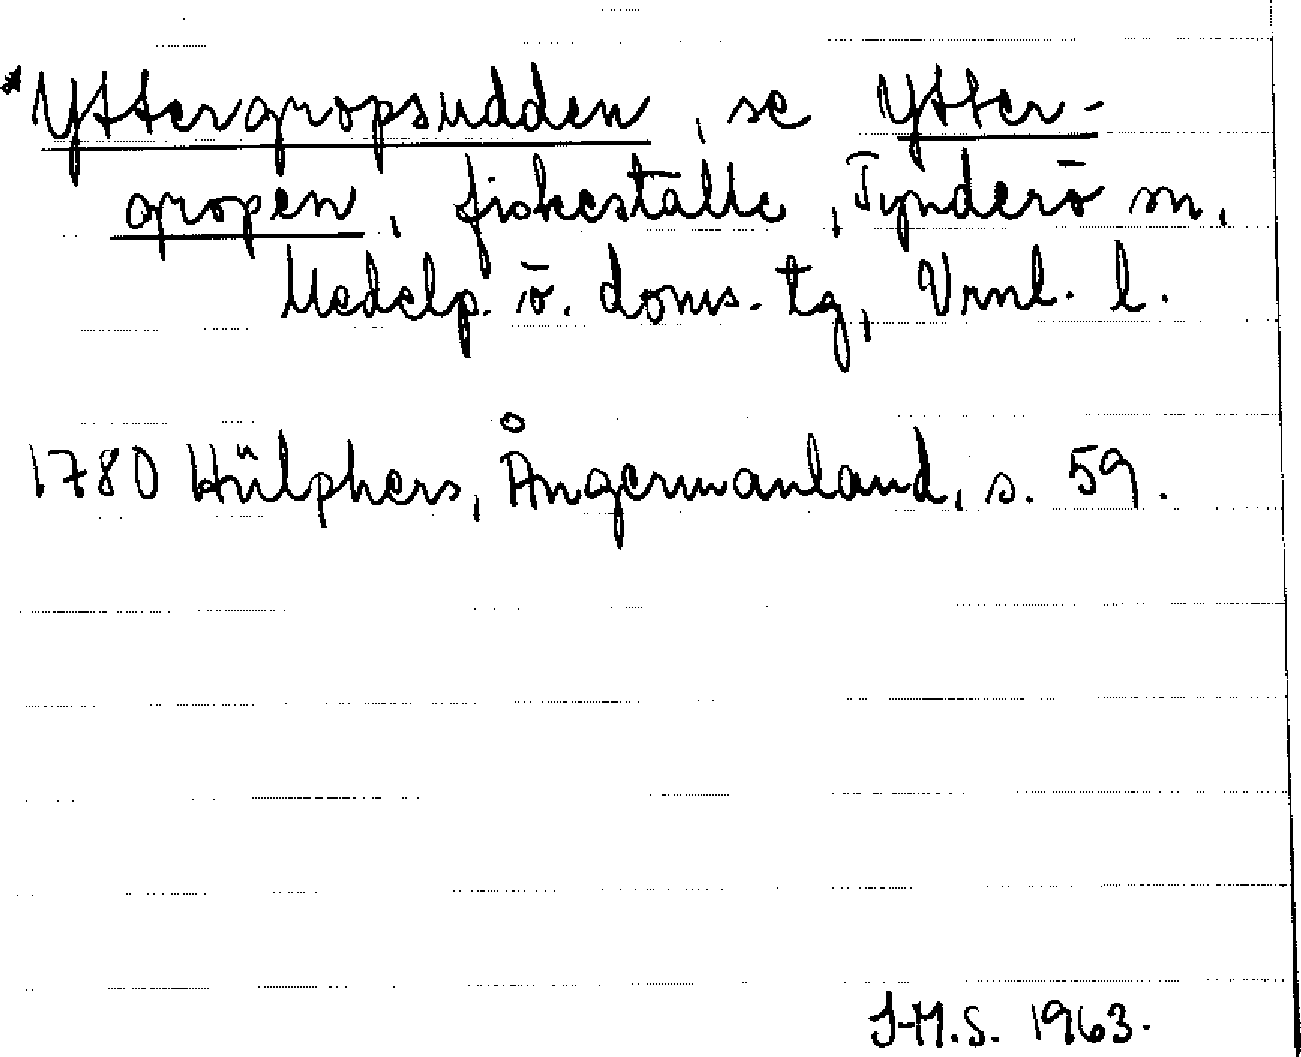 *Yttergropsudden, se Ytter-
gropen, fiskeställe, Tynderö sn,
Medelp. ö. doms. tg, Vrnl. l.
1780 Hülphers, Ångermanland, s. 59.
J-M.S. 1963.